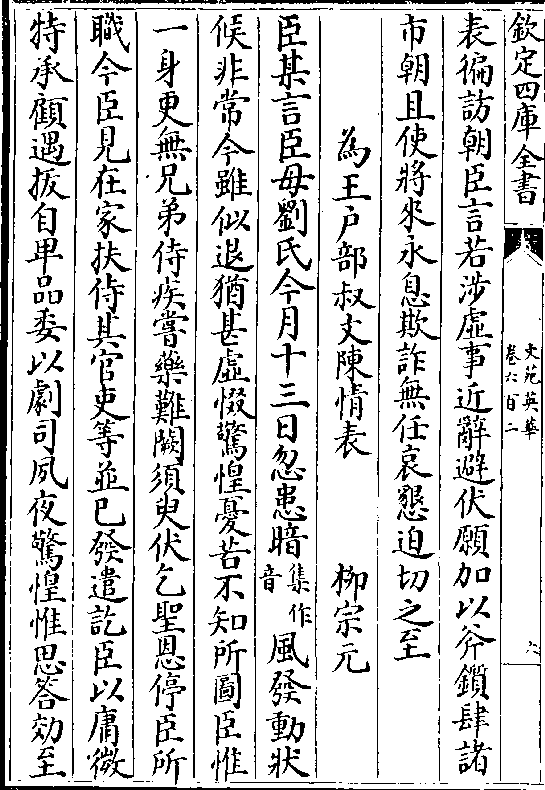 欽定四庫全書
文苑英華
卷六百二
六
表徧訪朝臣言若涉虛事近辭避伏願加以斧鎖肆諸
市朝且使將來永息欺詐無任哀懇迫切之至
為王户部叔文陳情表 柳宗元
臣某言臣母劉氏今月十三日忽患暗集作音風發動狀
候非常今雖似退猶甚虛惙驚惶憂苦不知所圖臣惟
一身更無兄弟侍疾嘗藥難闕須臾伏乞聖恩停臣所
職今臣見在家扶侍其官吏等並已發遣訖臣以庸微
特承顧遇拔自卑品委以劇司夙夜驚惶惟思答効至